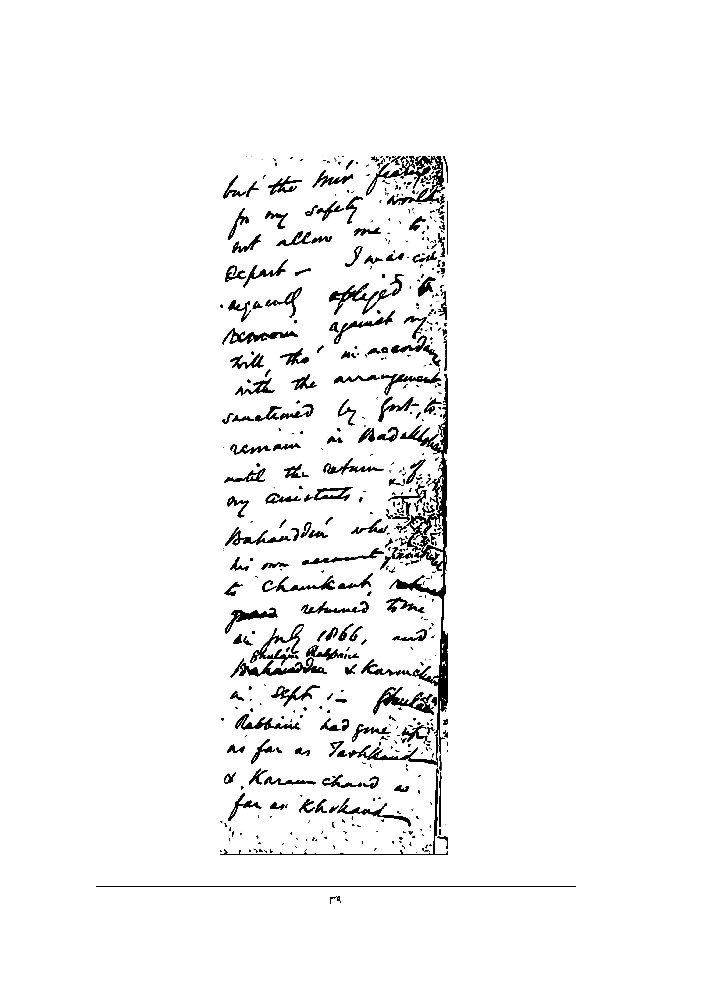 but the Mir fearing
for my safety would
not allow me to
depart – I was con
sequently obliged to
remain against my
will, tho' in accordance
with the arrangement
sanctioned by Govt, to
remain in Badakhshan
until the return of
my assistants.
Bahauddin who
his own account
to Chamkant,
returned to me
in July 1866, and
Ghulam Rabbani
Bahauddin & Karmchand
in Sept. – Ghulam
Rabbani had gone up
as far as Tashkand
& Karam chand as
far as Khokand
۳۹